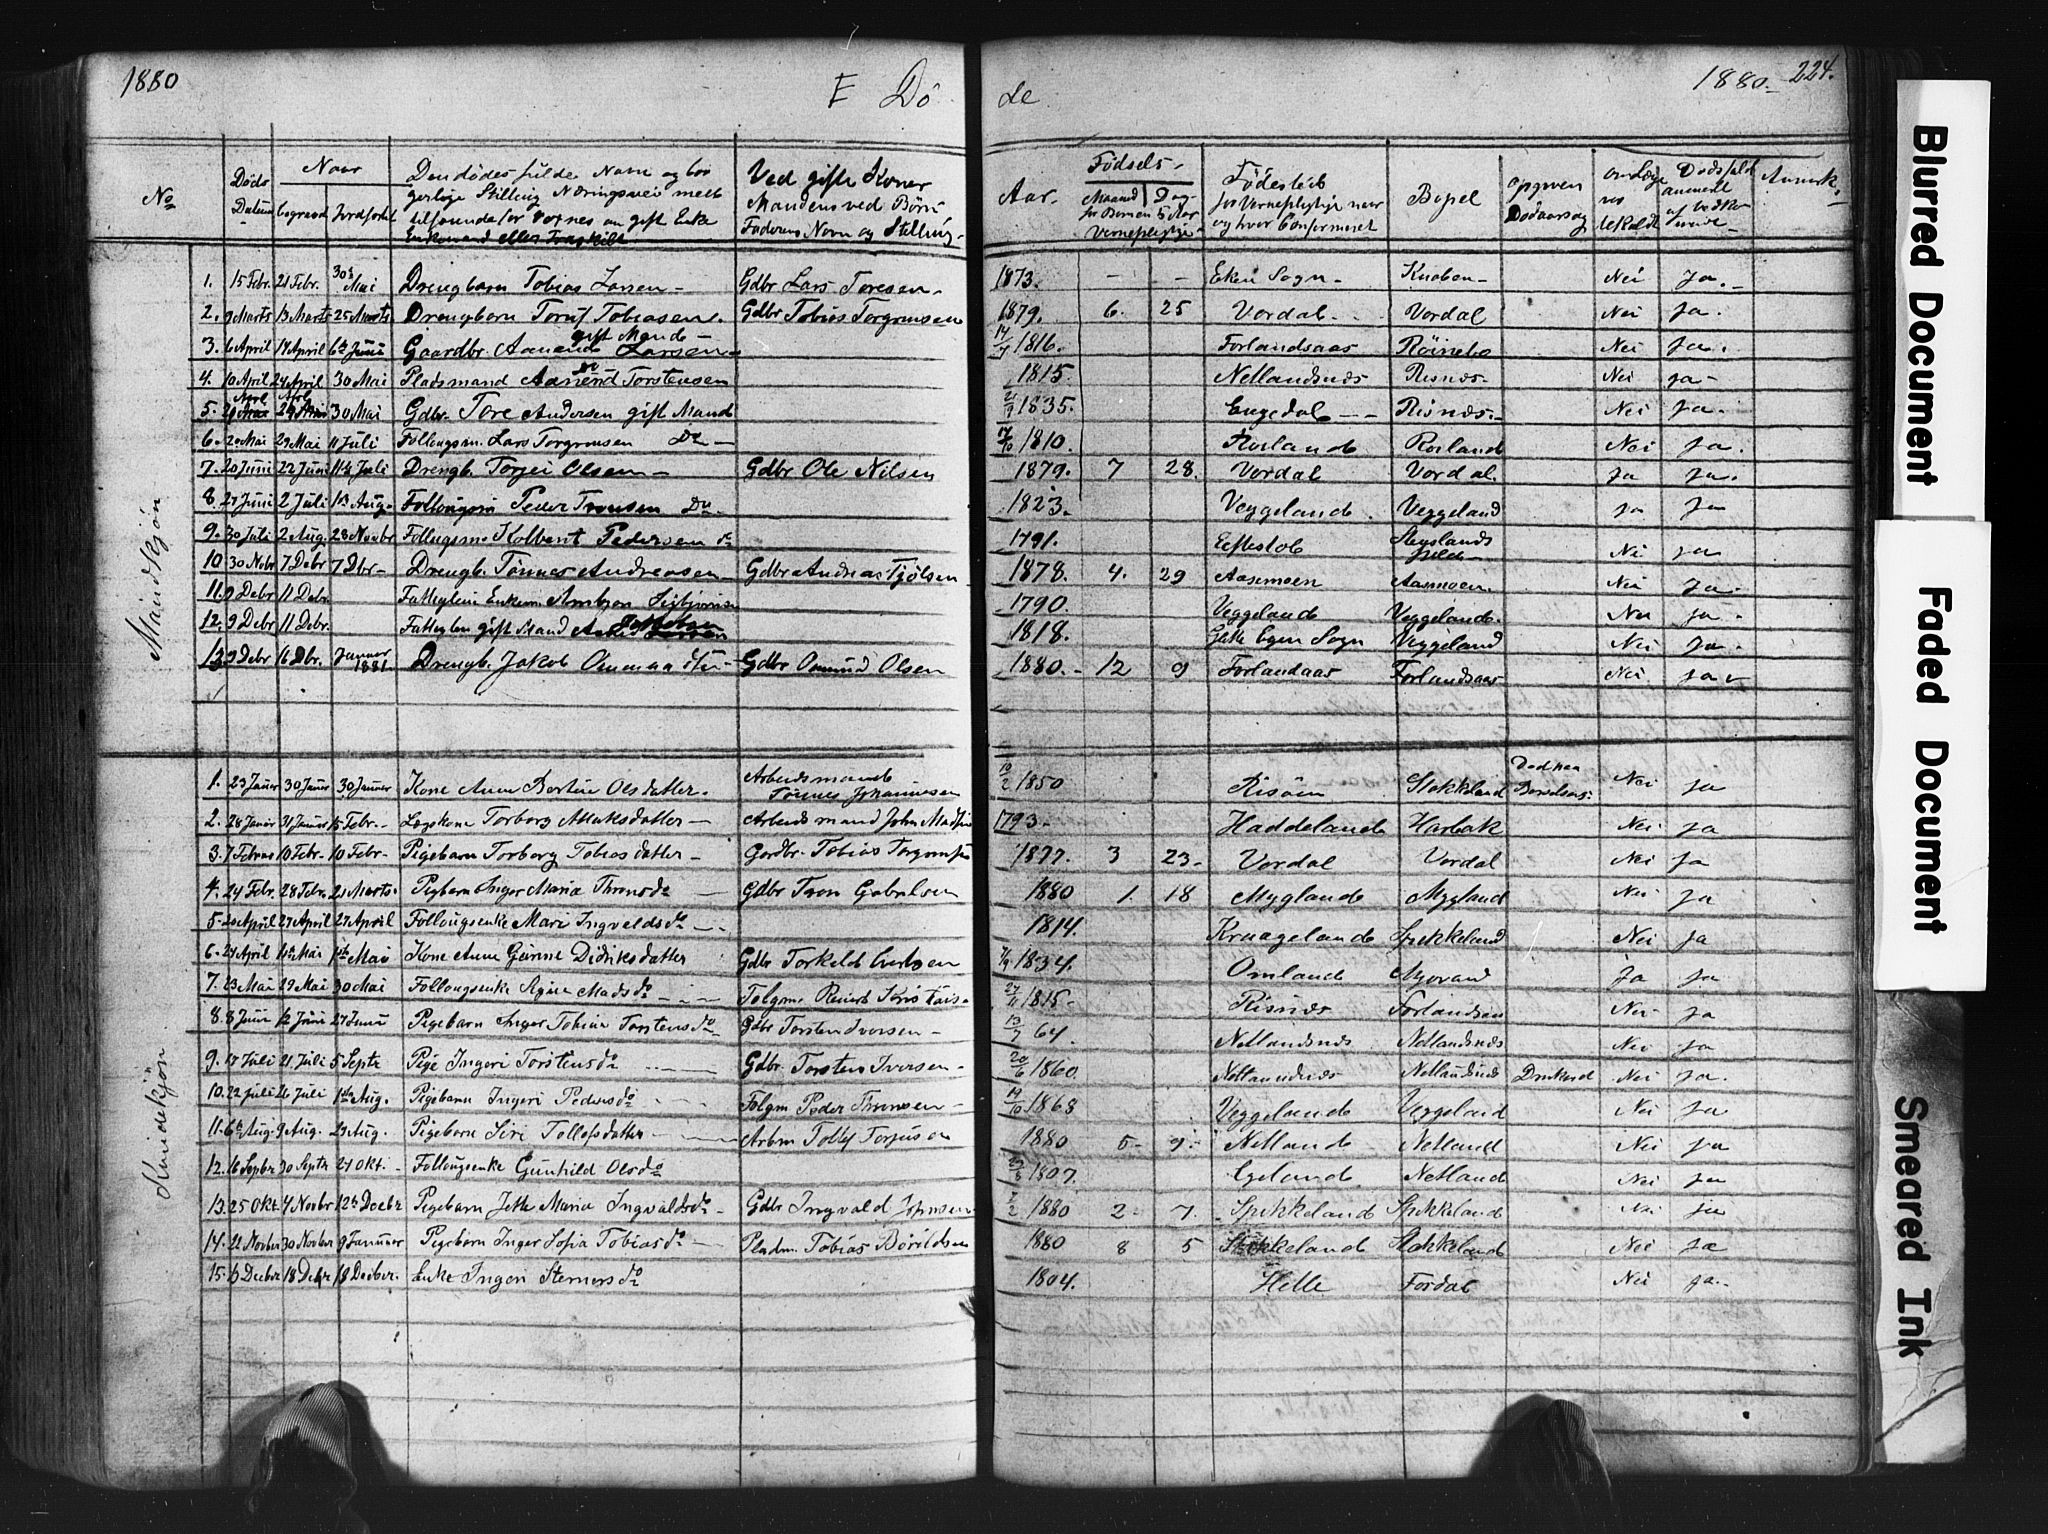 1880
E Dö
de
1880.
224.
No
Döds Datum
Naar
begravet
Jordfæstet
Den dödes fulde Navn og bor
gerlige Stilling Næringsvei med
Enkemand eller Fraskilt
Ved gifte Koner
Mandens ved Börn
Faderens Navn og Stilling.
Aar.
Födsels-
Maaned
Dag
for Börnen 5 Aar
Vernepligtige
Födested
for Vernepligtige naar
og hvor Confirmeret
Bopel
opgiven
Dödaarsag
om Læge
tilkaldt
Dödsfaldet
anmeldt
Anmerk.
Mandkjön
1. 15 Febr. 21 Febr. 30 Mai Drengbarn Tobias Larsen - Gdbr Lars Toresen - 1873. - - Eken Sogn - Knaben - Nei Ja. -
2. 9 Marts 13 Marts 25 Marts Drengbarn Tobiasen. Gdbr Tobias Torgrimsen 1879. 6. 25 Vordal - Vordal Nei Ja.
3. 6 April 17 April 6te Juni Gaardbr. Aanend Larsen gift Mand 1816. Forlandsaas Röinebo Nei Ja.
4. 10 April 24 April 30 Mai Pladsmand Aanend Torstensen Do 1815. Netlandsnes Risnes - Nei Ja -
5. 21 Aprl 29 Aprl 30 Mai Gdbr. Tore Andersen gift Mand 1835. Engedal - - Risnes - Nei Ja.
6. 20 Mai 29 Mai 11 Juli Follougsm. Lars Torgrimsen Do - 17/10 1810. Rorland Rorland Nei Ja.
7. 20 Juni 22 Juni 11te Juli Drengb. Torjei Olsen - Gdbr Ole Nilsen 1879. 7 28. Vordal Vordal. Ja Ja.
8. 27 Juni 2 Juli 1st Aug. Follougsm Peder Tronsen Do - 1823. Veggeland. Veggeland Ja Ja
9. 30 Juli 2 Aug. 28 Novbr Follugsm. Kolbent Pedersen do 1791. Eftestöl Nei Ja
10. 30 Nobr 7 Debr 7 Dbr - Drengb. Tönnes Andreasen - Gdbr Andreas Tjölsen 1878. 4. 29 Aasemoen Aasmoen. Nei Ja.
11. 9 Debr 11 Debr. Fattiglem Enkem. 1790. Veggeland Veggeland. Nei Ja -
12. 9 Debr 11 Debr. Fattiglem gift Mand 1818. Sogn Veggeland Nei Ja -
13. 9 Debr 16 Dbr. Januar 1881 Drengb. Jakob - Gdbr Omund Olsen 1880. - 12 9 Forlandaas Forlandsaas Nei Ja -
Kvindekjön
1. 23 Januar 30 Januar 30 Januar Kone Anne Bertine Olsdatter. Arbeidsmand Tönnes Johannesen 10/2 1850 Risöen Stokkeland Död hen Barselseng. Nei Ja
2. 28 Januar 31 Januar 15 Febr. - Lægskone Torborg Attaksdatter - Arbeidsmand John 1793 - Haddeland Harbak Nei Ja
3. 7 Februar 10 Febr - 10 Febr - Pigebarn Torborg Tobiasdatter - Gardbr. Tobias 1877. 3 23 - Vordal Vordal Nei Ja
4. 24 Febr. 28 Febr. 21 Marts. Pigbarn Inger Maria Thronsdo - Gdbr Tron Gabrielsen 1880 1. 18 Mygland Mygland Nei Ja
5. 20 April 27 April 27 April Follougsenke Mari Ingvaldsdo - 1814. Kraageland Spekkeland Nei Ja
6. 24 April 11te Mai Mai Kone Anne Gurine Didriksdatter Gdbr Torkeld 7/9 1834. Omland Myrvand Ja Ja
7. 23 Mai 29 Mai 30 Mai Follougsenke Madsdo - 27/11 1815 - Risnes Forlandsen Nei Ja
8. 8 Juni 12 Juni 27 Juni Pigebarn Inger Tobine Torstensdo - Gdbr Torsten Iversen - 13/7 64. Netlandsnes Netlandsnes Nei Ja
9. 17 Juli 21 Juli 5 Septr Pige Ingeri Torstensdo - Gdbr. Torsten Iversen - 20/6 1860. Netlandsnes Netlandsnes Druknet Nei Ja.
10. 22 Juli 26 Juli 1ste Aug. Pigebarn Ingeri Pedersdo - Folgm Peder Thronsen - 14/10 1868 Veggeland Veggeland Nei Ja
11. 6te Aug. 9 Aug. 29 Aug. Pigebarn Siri Tollefsdatter - Arbm Tollef 1880 5 - 9 - Netland Netland Nei Ja
12. 16 Septbr 20 Septr 27 Okt. - Follougsenke Gunhild Olsdo 1807. Egeland. Netland Nei Ja
13. 25 Okt. 4 Novbr 12te Decbr Pigebarn Jette Maria Ingvaldsdo - Gdbr Ingvald 7/2 1880 2 - 7. Spekkeland Spekkeland Nei Ja
14. 22 Novbr 30 Novbr 9 Januar Pigebarn Inger Sofia Tobiasdo - Pladsm. Tobias Böieldsen 1880 8 5 Stokkeland Stokkeland Nei Ja
15. 13 Decbr 18 Debr 18 Decber. Enke Ingeri Stenersdo 1804. Helle Fordal Nei Ja -
Blurred Document
Faded Document
Smeared Ink